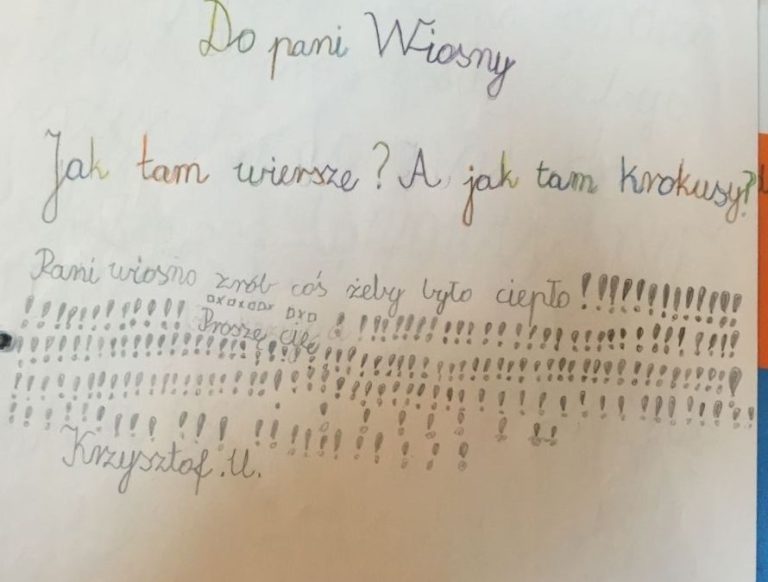 Do pani Wiosny
Jak tam wiersze? A jak tam krokusy?
Pani wiosno zrób coś żeby było ciepło!!!!!!!!!!!!
!!!!!!!!!!!! Proszę cię !!!!!!!!!!!!!!!!!!!!!!!!!!!!
!!!!!!!!!!!!!!!!!!!!!!!!!!!!!!!!!!!!!!!!!!!!!!!!
!!!!!!!!!!!!!!!!!!!!!!!!!!!!!!!!!!!!!!!!!!!!!!
!!!!!!!!!!!!!!!!!!!!!!!!!!!!!!
Krzysztof.U.